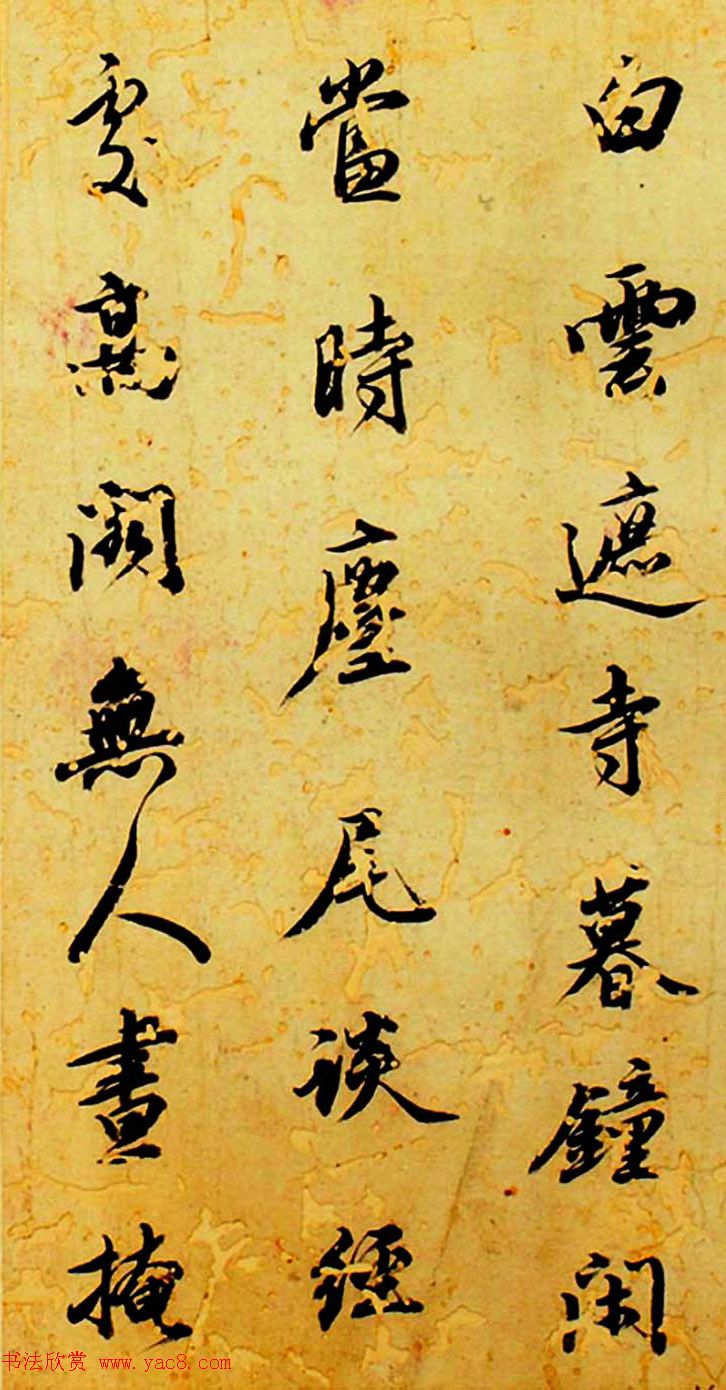 白雲遮寺暮鐘閑
當時麈尾談經
處高閣無人晝掩
书法欣赏 www.yac8.com